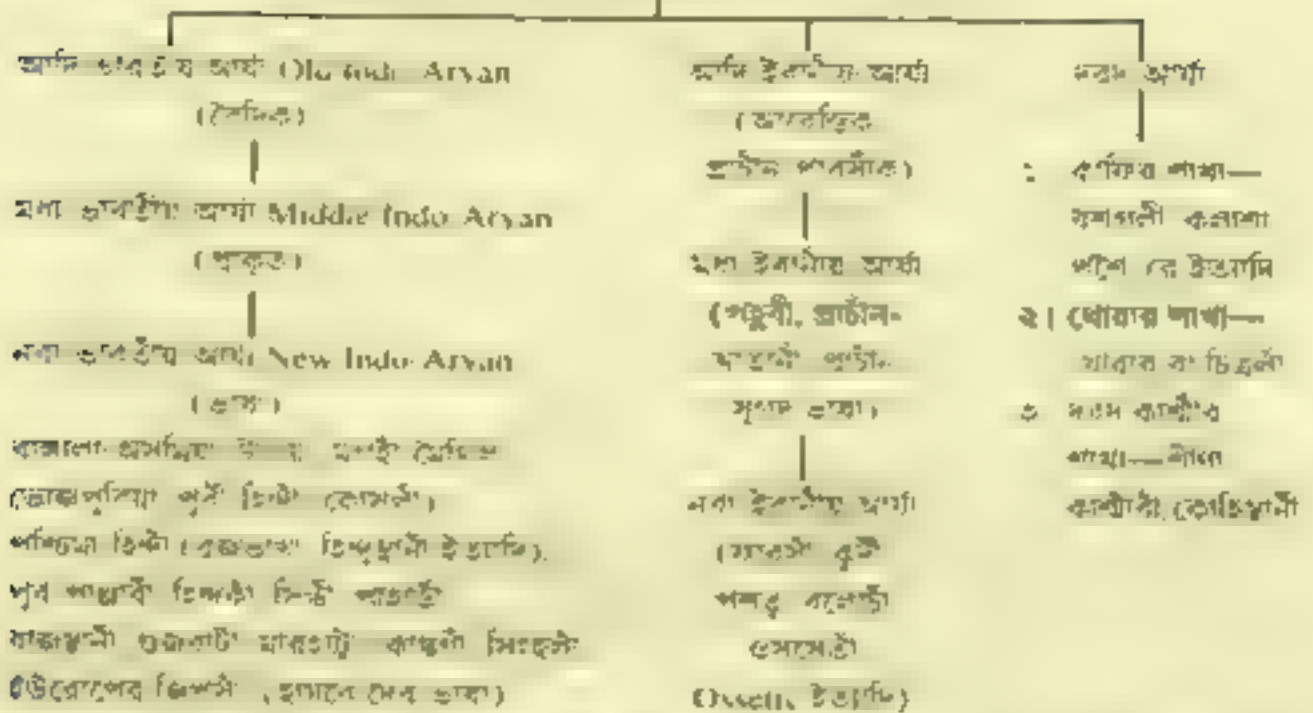 আদি ভারতীয় আর্য্য Old Indo-Aryan
(বৈদিক)
মধ্য ভারতীয় আর্য্য Middle Indo Aryan
(প্রাকৃত)
নব্য ভারতীয় আর্য্য New Indo-Aryan
(ভাষা)
বাঙ্গালা অসমিয়া মগহী মৈথিল
ভোজপুরিয়া পূর্বী হিন্দী (কোসলী)
পশ্চিমা হিন্দী (ব্রজভাখা হিন্দুস্থানী ইত্যাদি),
পূর্ব পাঞ্জাবী হিন্দকী সিন্ধী পাহাড়ী
রাজস্থানী গুজরাটী মারহাট্টী সিংহলী
ইউরোপের জিপ্সী ভাষা)
আদি ইরানীয় আর্য্য
(আবেস্তিক
প্রাচীন পারসীক)
মধ্য ইরানীয় আর্য্য
(পহ্লবী, প্রাচীন-
ভাষা)
নব্য ইরানীয় আর্য্য
(ফারসী কুর্দী
পশতু বলোচী
ওসসেতী
Ossetic ইত্যাদি)
দরদ আর্য্য
১ কাফির শাখা—
বশগলী কলাশা
পশৈ ইত্যাদি
২। খোয়ার শাখা—
খোরার বা চিত্রলী
৩ দরদ কাশ্মীর
শাখা—শীনা
কাশ্মীরী, কোহিস্থানী